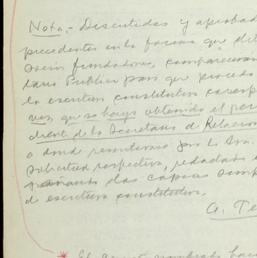 Nota.- Discutidas y aprobad
precedentes en la forma que del
socios fundadores, comparecerán
tario Público para que proceda
la escritura constitutiva corresp
vez que se haya obtenido el per
de la Secretaría de Relacion
a donde remitirán por
solicitud respectiva, redactada
las copias simp
de escritura constitutiva.
A. Te
* El